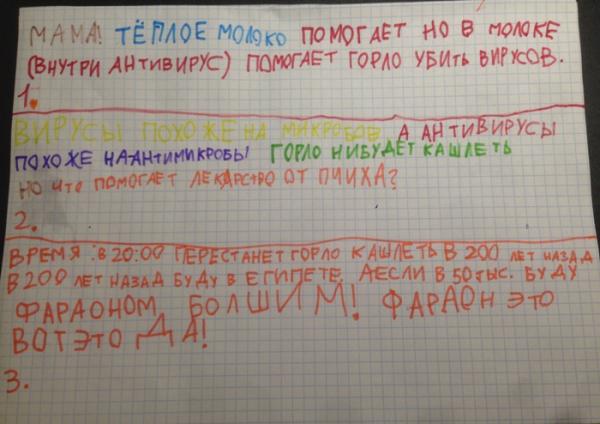 МАМА! ТЁПЛОЕ МОЛОКО ПОМОГАЕТ НО В МОЛОКЕ
(ВНУТРИ АНТИВИРУС) ПОМОГАЕТ ГОРЛО УБИТЬ ВИРУСОВ.
1.
ВИРУСЫ ПОХОЖЕ НА МИКРОБОВ, А АНТИВИРУСЫ
ПОХОЖЕ НА АНТИМИКРОБЫ ГОРЛО НИБУДЕТ КАШЛЕТЬ
НО ЧТО ПОМОГАЕТ ЛЕКАРСТВО ОТ ПЧИХА?
2.
ВРЕМЯ :В 20:00 ПЕРЕСТАНЕТ ГОРЛО КАШЛЕТЬ В 200 ЛЕТ НАЗАД
В 200 ЛЕТ НАЗАД БУДУ В ЕГИПЕТЕ. АЕСЛИ В 50 ТЫС. БУДУ
ФАРАОНОМ БОЛШИМ! ФАРАОН ЭТО
ВОТ ЭТО ДА!
3.